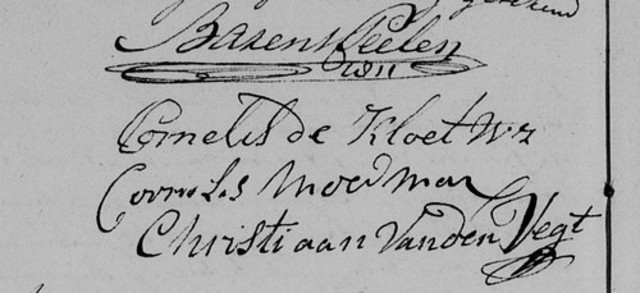 getekend
Barens Peelen
Cornelis de Kloet Wz
Cornelis Moerman
Christiaan Vanden Vegt